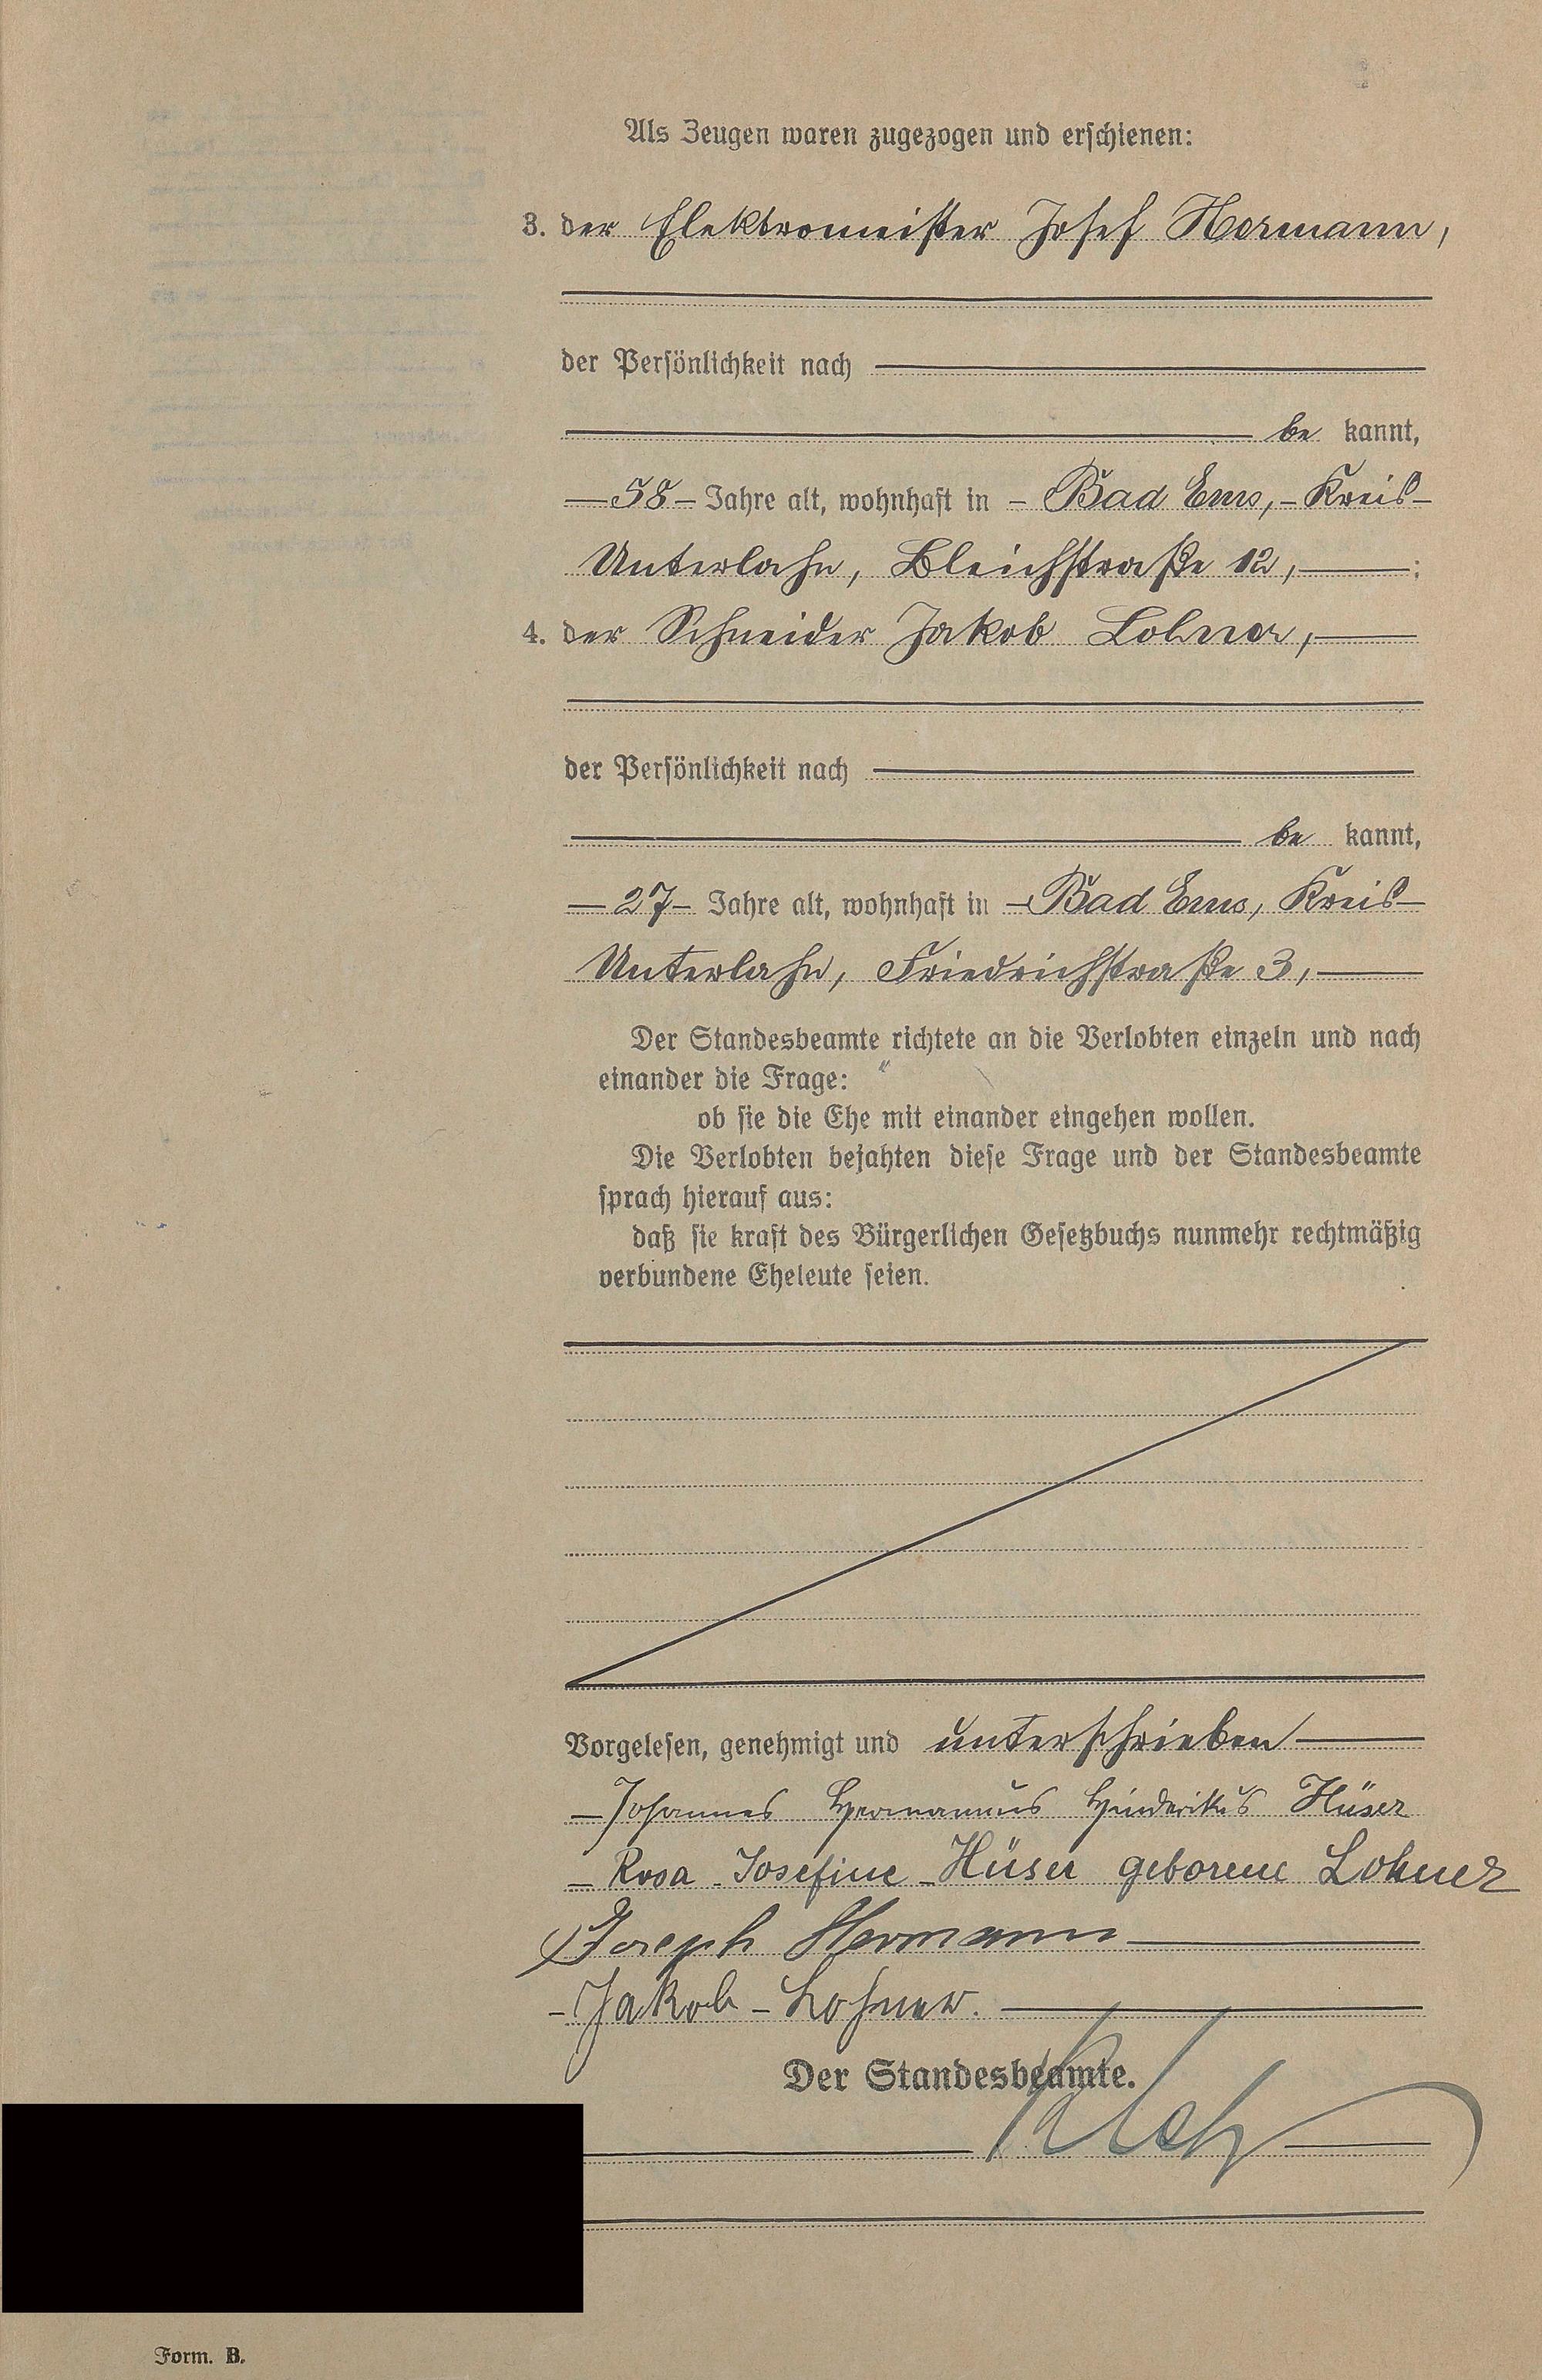 Als Zeugen waren zugezogen und erschienen:
3. der Elektromeister Josef Hermann,
der Persönlichkeit nach
be kannt,
— 58 — Jahre alt, wohnhaft in — Bad Ems, — Kreis —
Unterlahn, Bleichstraße 12, — ;
4. der Schneider Jakob Lohner, —
der Persönlichkeit nach
be kannt,
— 27 — Jahre alt, wohnhaft in — Bad Ems, Kreis —
Unterlahn, Friedrichstraße 3, —
Der Standesbeamte richtete an die Verlobten einzeln und nach
einander die Frage:
ob sie die Ehe mit einander eingehen wollen.
Die Verlobten bejahten diese Frage und der Standesbeamte
sprach hierauf aus:
daß sie kraft des Bürgerlichen Gesetzbuchs nunmehr rechtmäßig
verbundene Eheleute seien.
Vorgelesen, genehmigt und unterschrieben —
— Johannes Hermannus Hinderikus Hüser
— Rosa Josefine Hüser geborene Lohner
Joseph Hermann —
— Jakob — Lohner. —
Der Standesbeamte.
Form. B.